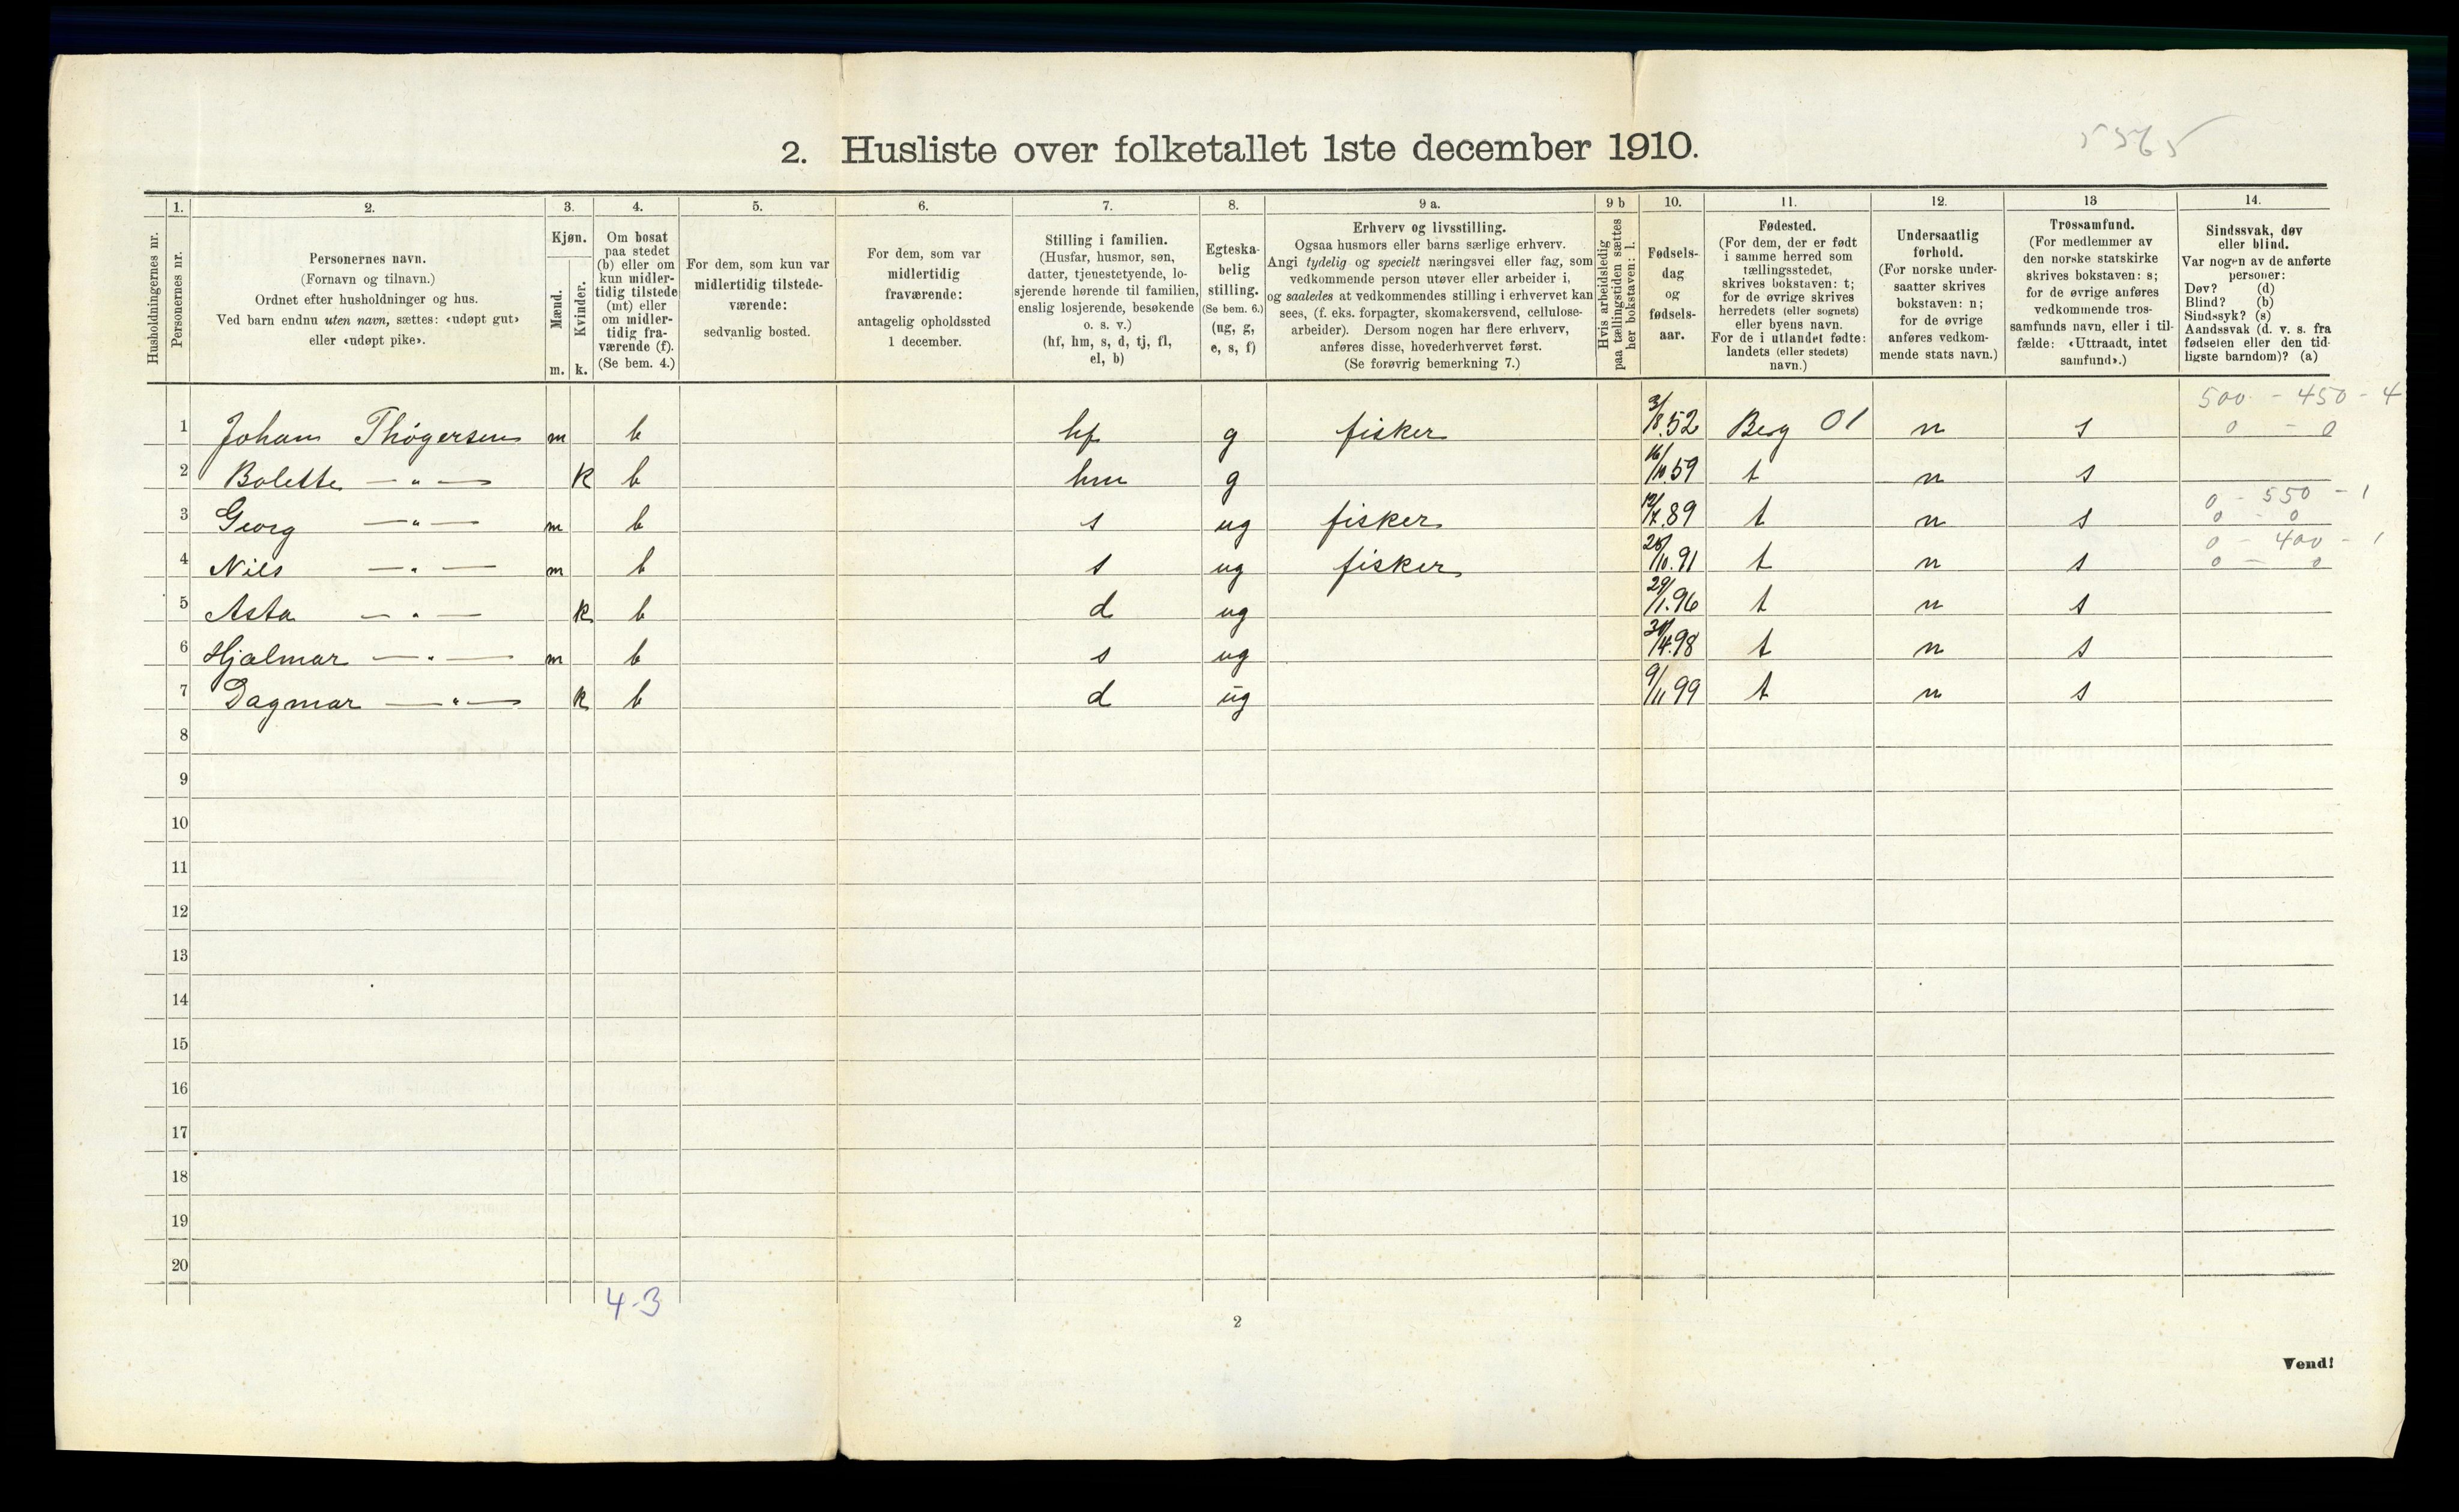 5565
2. Husliste over folketallet 1ste december 1910.
1. 2. 3. 4. 5. 6. 7. 8. 9 a. 9 b 10. 11. 12. 13 14.
Husholdningernes nr.
Personernes nr.
Personernes navn.
(Fornavn og tilnavn.)
Ordnet efter husholdninger og hus.
Ved barn endnu uten navn, sættes: «udøpt gut»
eller «udøpt pike».
Kjøn.
Mænd.
Kvinder.
m. k.
Om bosat
paa stedet
(b) eller om
kun midler-
tidig tilstede
(mt) eller
om midler-
tidig fra-
værende (f).
(Se bem. 4.)
For dem, som kun var
midlertidig tilstede-
værende:
sedvanlig bosted.
For dem, som var
midlertidig
fraværende:
antagelig opholdssted
1 december.
Stilling i familien.
(Husfar, husmor, søn,
datter, tjenestetyende, lo-
sjerende hørende til familien,
enslig losjerende, besøkende
o. s. v.)
(hf, hm, s, d, tj, fl,
el, b)
Egteska-
belig
stilling.
(Se bem. 6.)
(ug, g,
e, s, f)
Erhverv og livsstilling.
Ogsaa husmors eller barns særlige erhverv.
Angi tydelig og specielt næringsvei eller fag, som
vedkommende person utøver eller arbeider i,
og saaledes at vedkommendes stilling i erhvervet kan
sees, (f. eks. forpagter, skomakersvend, cellulose-
arbeider). Dersom nogen har flere erhverv,
anføres disse, hovederhvervet først.
(Se forøvrig bemerkning 7.)
Hvis arbeidsledig
paa tællingstiden sættes
her bokstaven: l.
Fødsels-
dag
og
fødsels-
aar.
Fødested.
(For dem, der er født
i samme herred som
tællingsstedet,
skrives bokstaven: t;
for de øvrige skrives
herredets (eller sognets)
eller byens navn.
For de i utlandet fødte:
landets (eller stedets)
navn.)
Undersaatlig
forhold.
(For norske under-
saatter skrives
bokstaven: n;
for de øvrige
anføres vedkom-
mende stats navn.)
Trossamfund.
(For medlemmer av
den norske statskirke
skrives bokstaven: s;
for de øvrige anføres
vedkommende tros-
samfunds navn, eller i til-
fælde: «Uttraadt, intet
samfund».)
Sindssvak, døv
eller blind.
Var nogen av de anførte
personer:
Døv? (d)
Blind? (b)
Sindssyk? (s)
Aandssvak (d. v. s. fra
fødselen eller den tid-
ligste barndom)? (a)
500 - 450 - 4
1 Johan Thøgersen m b hf g fisker 3/8.52 Berg 01 n s 0 - 0
2 Bolette — " — k b hm g 16/10.59 t n s
0 - 550 - 1
3 Georg — " — m b s ug fisker 12/4.89 t n s 0 - 0
0 - 400 - 1
4 Nils — " — m b s ug fisker 28/10.91 t n s 0 - 0
5 Asta — " — k b d ug 29/1.96 t n s
6 Hjalmar — " — m b s ug 30/4.98 t n s
7 Dagmar — " — k b d ug 9/11 99 t n s
8
9
10
11
12
13
14
15
16
17
18
19
20
4-3
2
Vend!